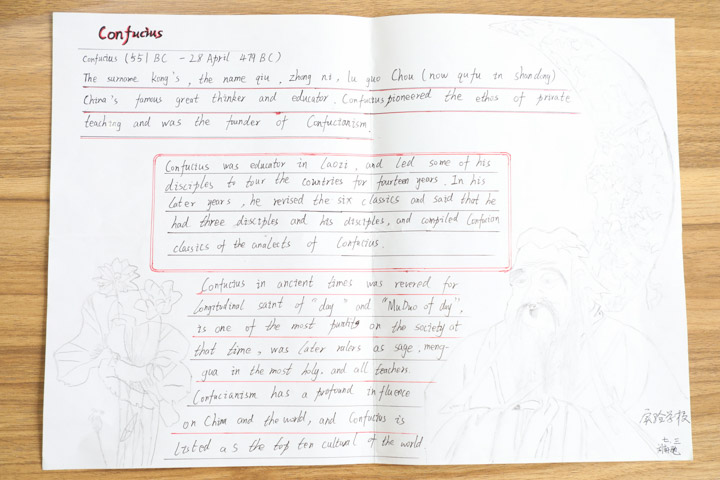 Confucius
Confucius (551 BC - 28 April 479 BC)
The surname kong's, the name qiu, zhong ni, lu guo Chou (now qufu in shandong)
China's famous great thinker and educator. Confucius pioneered the ethos of private
teaching and was the funder of Confucianism.
Confucius was educator in Laozi, and led some of his
disciples to tour the countries for fourteen years. In his
later years, he revised the six classics and said that he
had three disciples and his disciples, and compiled Confucian
classics of the analects of Confucius.
Confucius in ancient times was revered for
longitudinal saint of "day" and "MuDuo of day",
is one of the most on the society at
that time, was later rulers as sage, meng-
gua in the most holy, and all teachers.
Confucianism has a profound influence
on China and the world, and Confucius is
Listed as the top ten cultural of the world.
实验学校
七.三